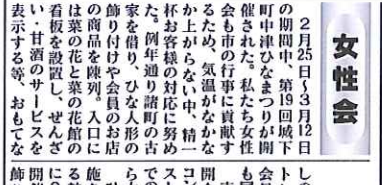 女性会
２月25日～３月12日
の期間中、第19回城下
町中津ひなまつりが開
催された。私たち女性
会も市の行事に貢献す
るため、気温がなかな
か上がらない中、精一
杯お客様の対応に努め
た。例年通り諸町の古
家を借り、ひな人形の
飾り付けや会員のお店
の商品を陳列。入口に
は菜の花と菜の花館の
看板を設置し、ぜんざ
い・甘酒のサービスを
表示する等、おもてな